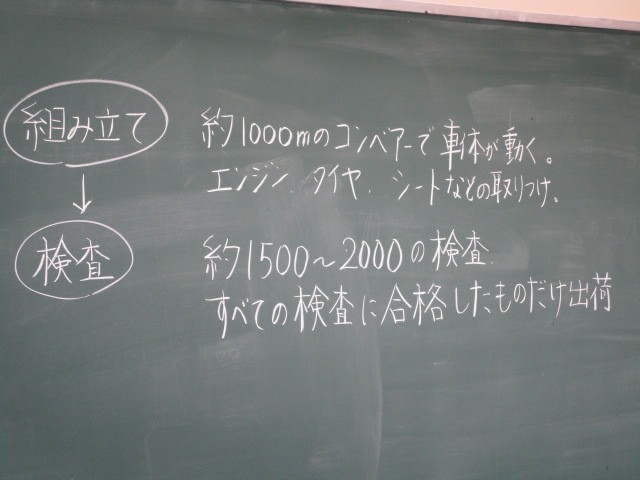 組み立て
約1000mのコンベアーで車体が動く。
エンジン、タイヤ、シートなどの取りつけ。
↓
検査
約1500~2000の検査
すべての検査に合格したものだけ出荷